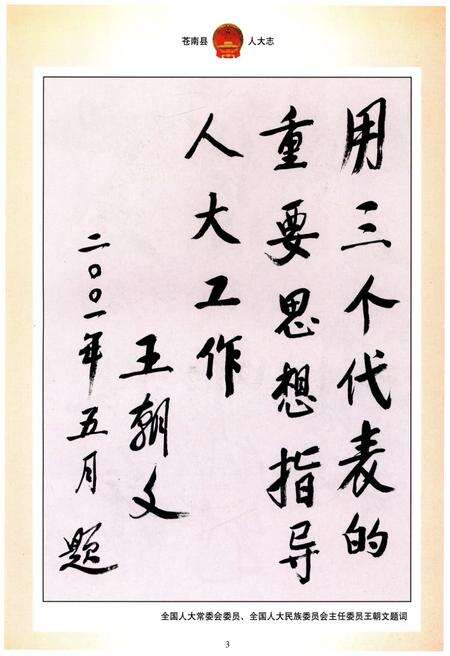 苍南县 人大志
用三个代表的
重要思想指导
人大工作
王朝文
二〇〇一年五月 题
全国人大常委会委员、全国人大民族委员会主任委员王朝文题词
3